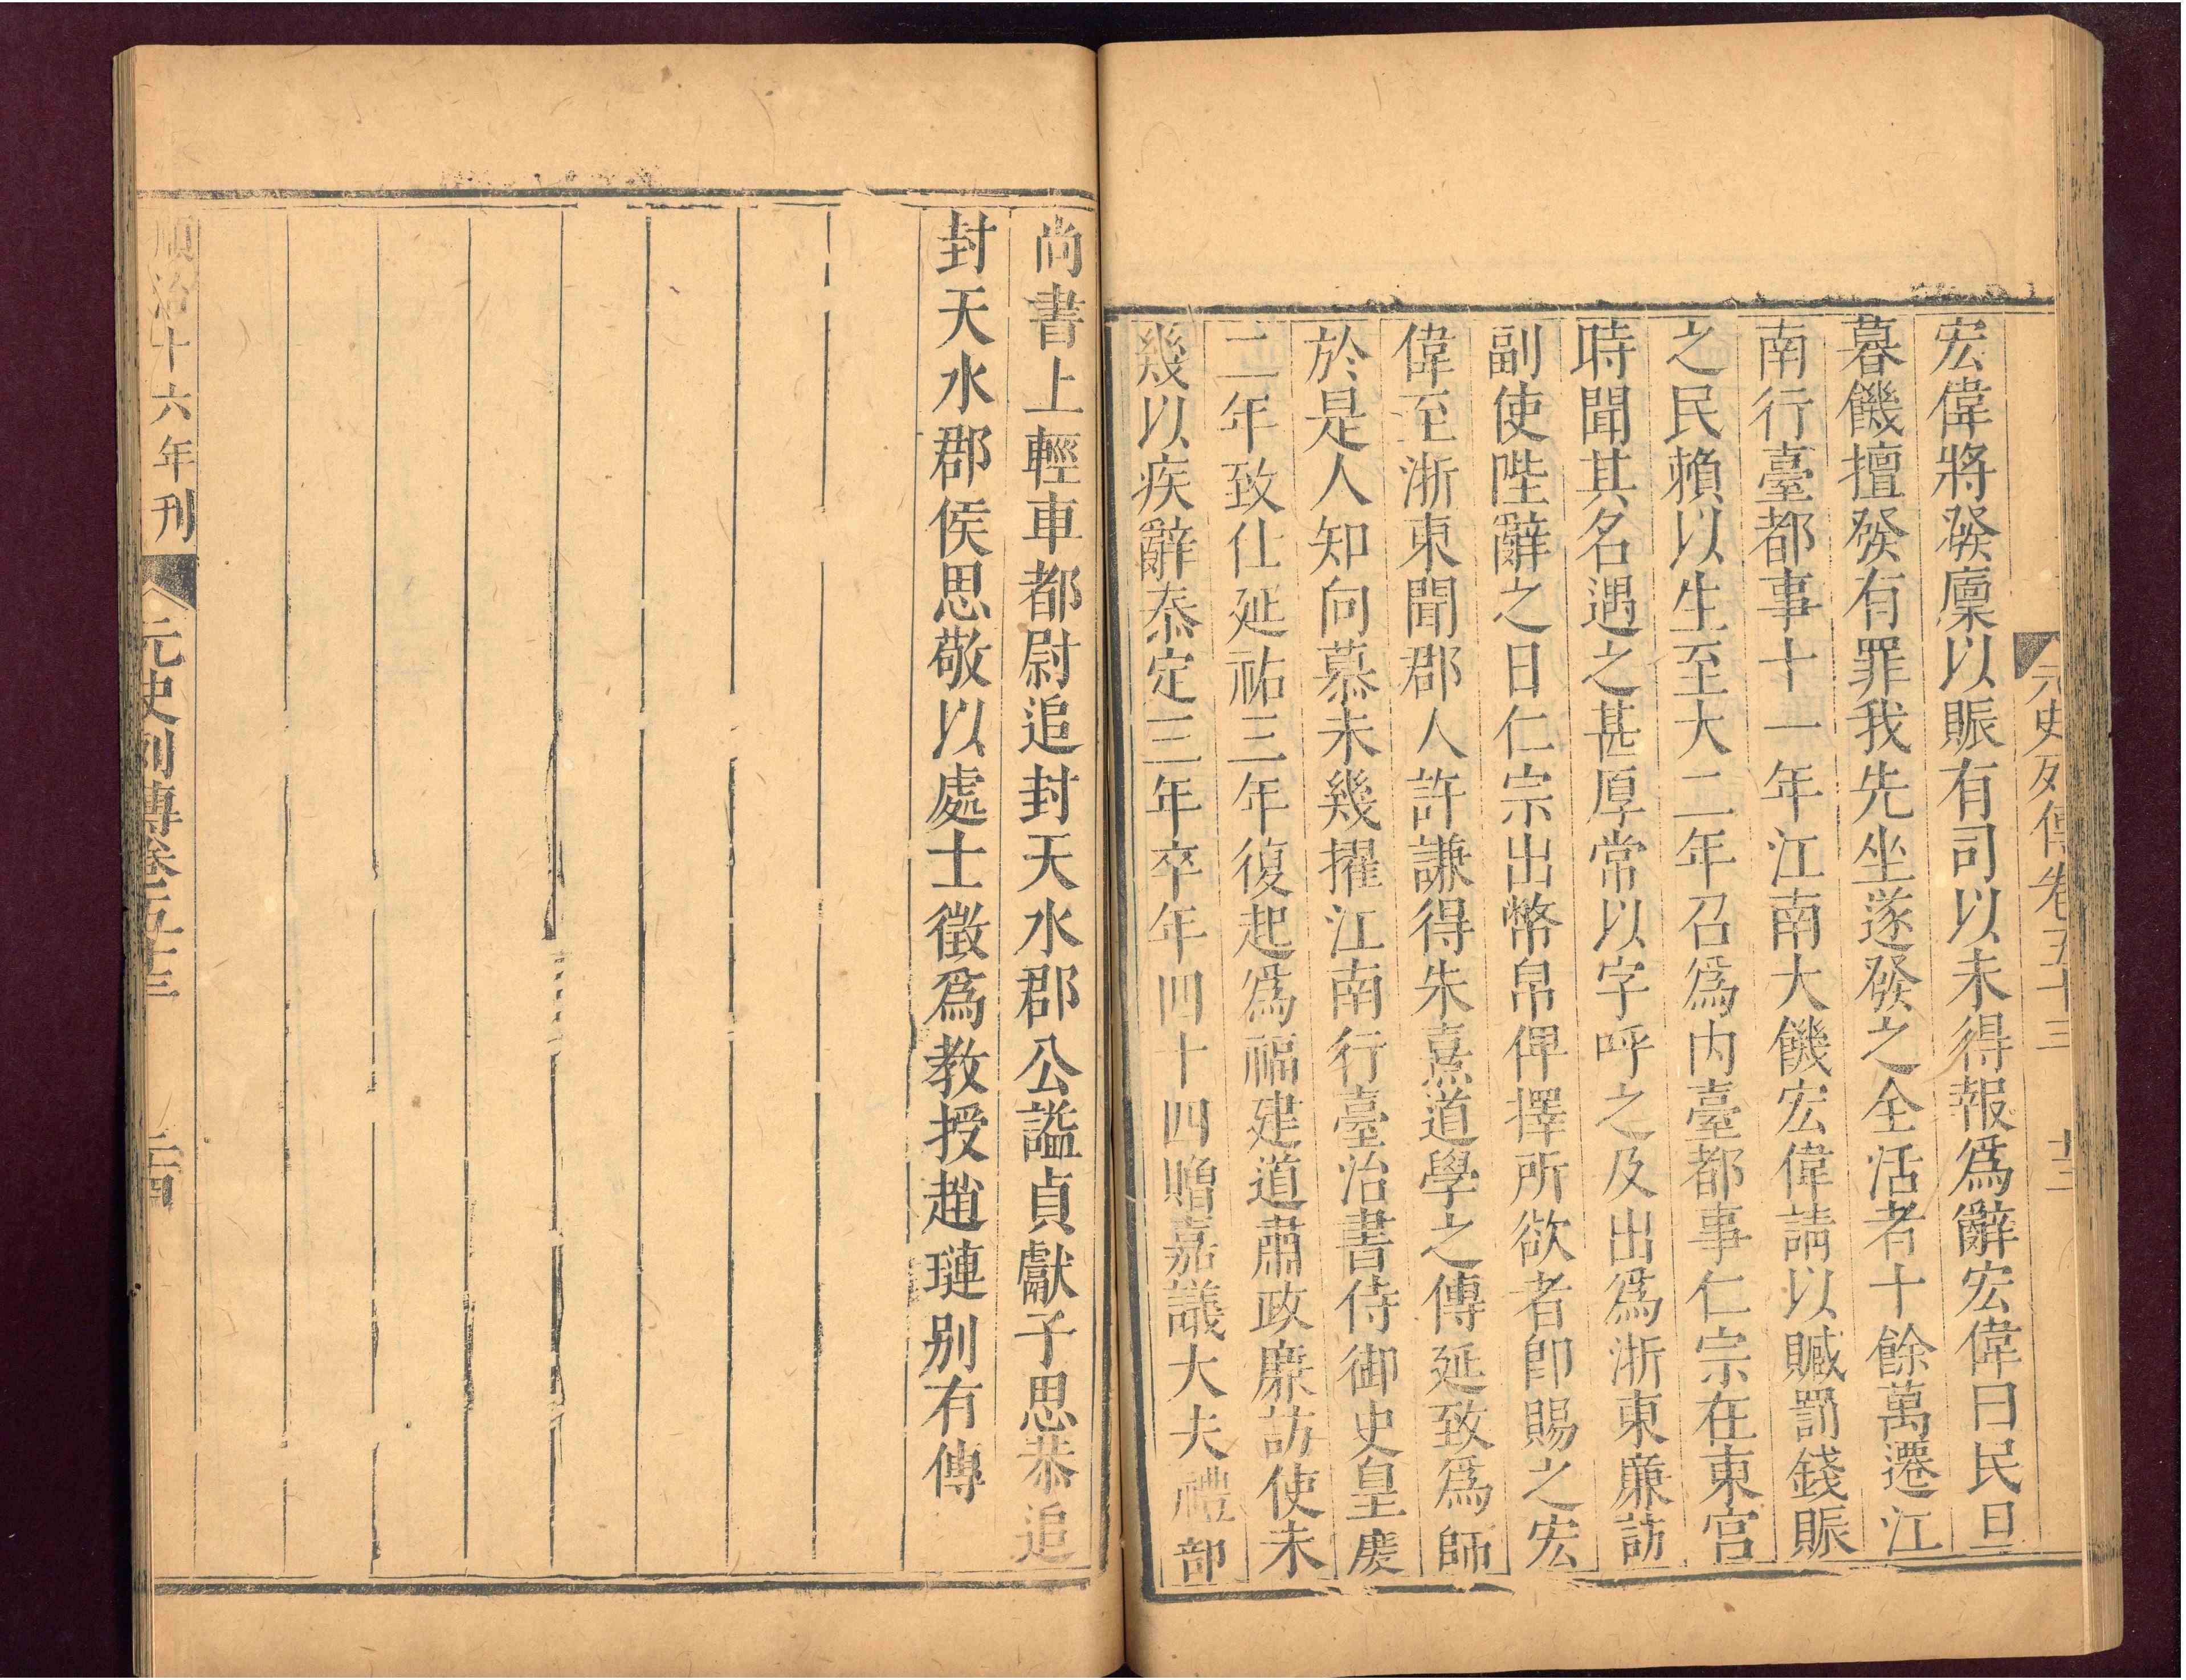 元史列傳卷五十三
宏偉將發廩以賑有司以未得報爲辭宏偉曰民旦
暮饑擅發有罪我先坐遂發之全活者十餘萬遷江
南行臺都事十一年江南大饑宏偉請以贓罰錢賑
之民賴以生至大二年召爲内臺都事仁宗在東宫
時聞其名遇之甚厚常以字呼之及出爲浙東廉訪
副使陛辭之日仁宗出幣帛俾擇所欲者卽賜之宏
偉至浙東聞郡人許謙得朱熹道學之傳延致爲師
於是人知向慕未幾擢江南行臺治書侍御史皇慶
二年致仕延祐三年復起爲福建道肅政廉訪使未
幾以疾辭泰定三年卒年四十四贈嘉議大夫禮部
尚書上輕車都尉追封天水郡公謚貞獻子思恭追
封天水郡侯思敬以處士徵爲教授趙璉别有傳
順治十六年刊
元史列傳卷五十三